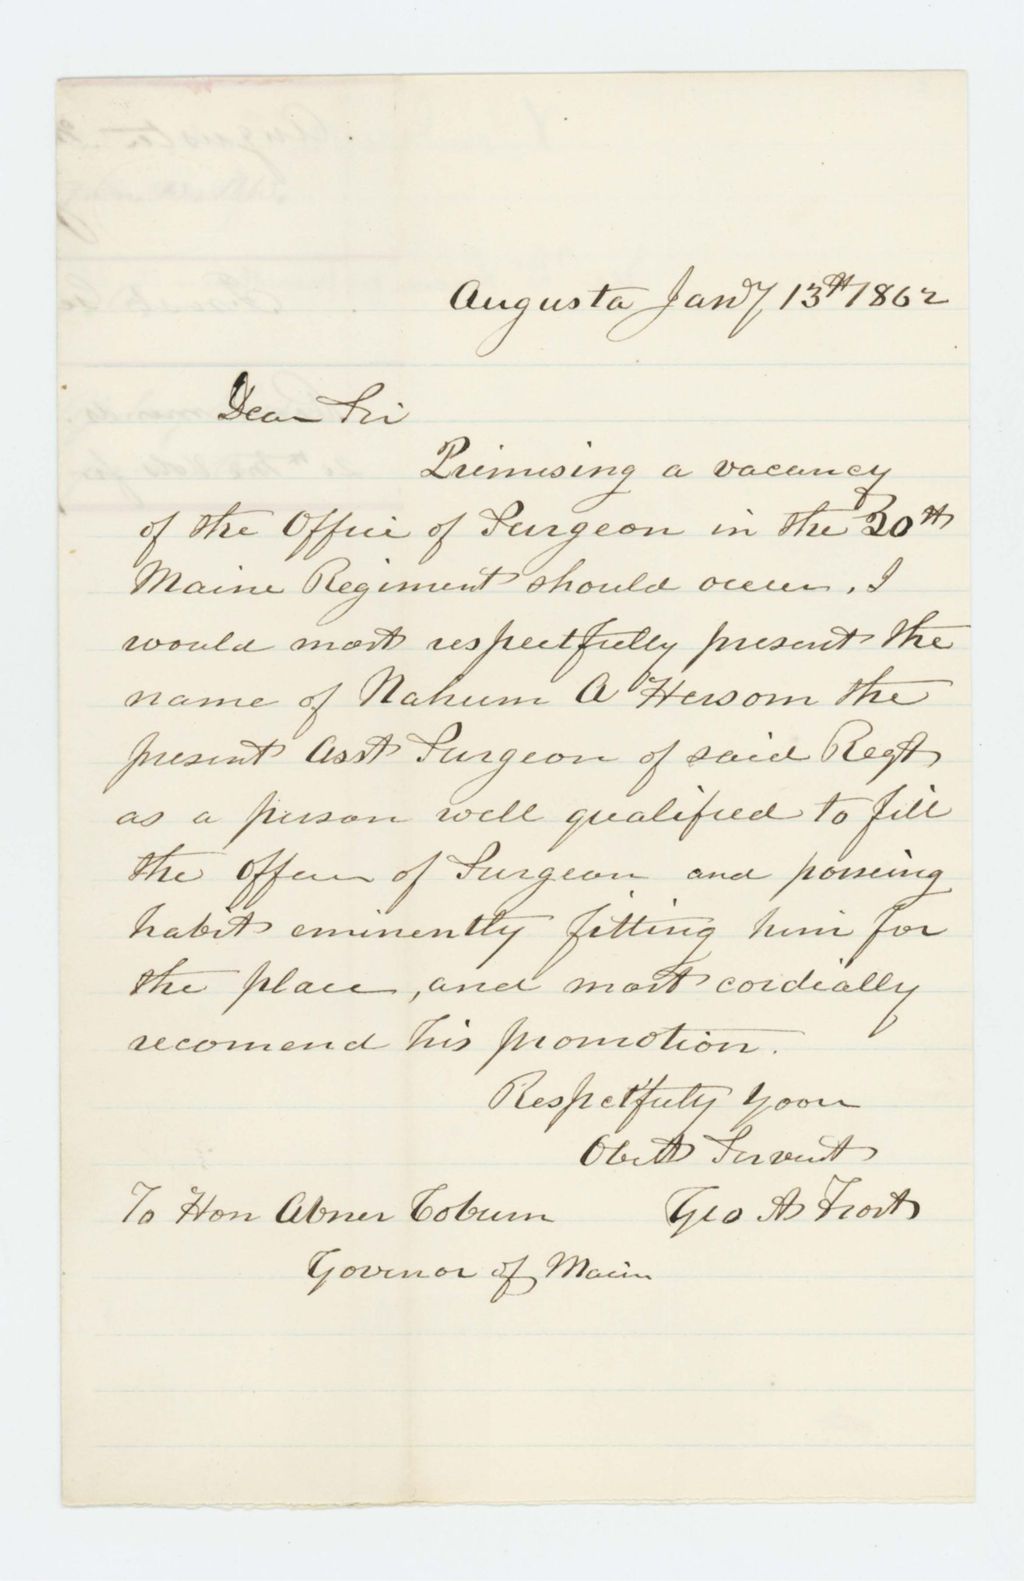 Augusta Jany 13th 1862
Dear Sir
Primising a vacancy
of the Office of Surgeon in the 20th
Maine Regiment should occur, I
would most respectfully present the
name of Nahum A Hersom the
present Asst Surgeon of said Regt
as a person well qualified to fill
the Office of Surgeon and possing
habit eminently fitting him for
the place, and most cordially
recomend his promotion.
Respectfully Your
Obett Servent
To Hon Abner Coburn Geo A Frost
Govenor of Maine